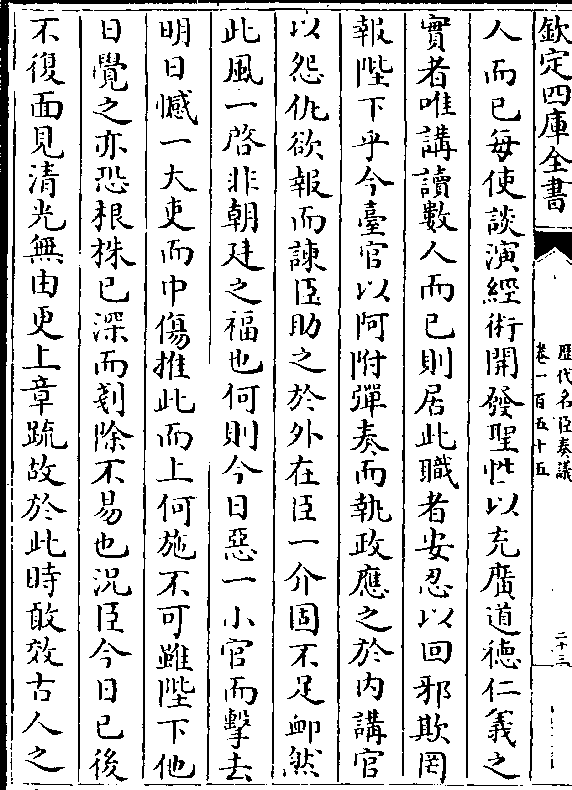 欽定四庫全書
歴代名臣奏議
卷一百五十五
二十三
人而已每使談演經術開發聖性以充廣道德仁義之
實者唯講讀數人而已則居此職者安忍以回邪欺罔
報陛下乎今臺官以阿附彈奏而執政應之於内講官
以怨仇欲報而諫臣助之於外在臣一介固不足䘏然
此風一啓非朝廷之福也何則今日惡一小官而擊去
明日憾一大吏而中傷推此而上何施不可雖陛下他
日覺之亦恐根株已深而剗除不易也況臣今日已後
不復面見清光無由更上章䟽故於此時敢效古人之